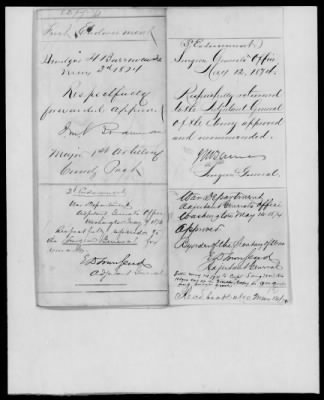 First Endorsement
May 3d 1874
Respectfully
forwarded approved
Major 1st Artillery
Comdg Post
2d Endorsement
War Department
Adjutant General's Office
Washington May 9 1874
Respectfully referred to
the Surgeon General for
remark
E D Townsend
Adjutant General
3d Endorsement
Surgeon General's Office
May 12, 1874.
Respectfully returned
to the Adjutant General
of the Army approved
and recommended.
Surgeon General.
War Department,
Adjutant General's Office
Washington May 14 1874
Approved
By order of the Secretary of War
E D Townsend
Adjutant General.